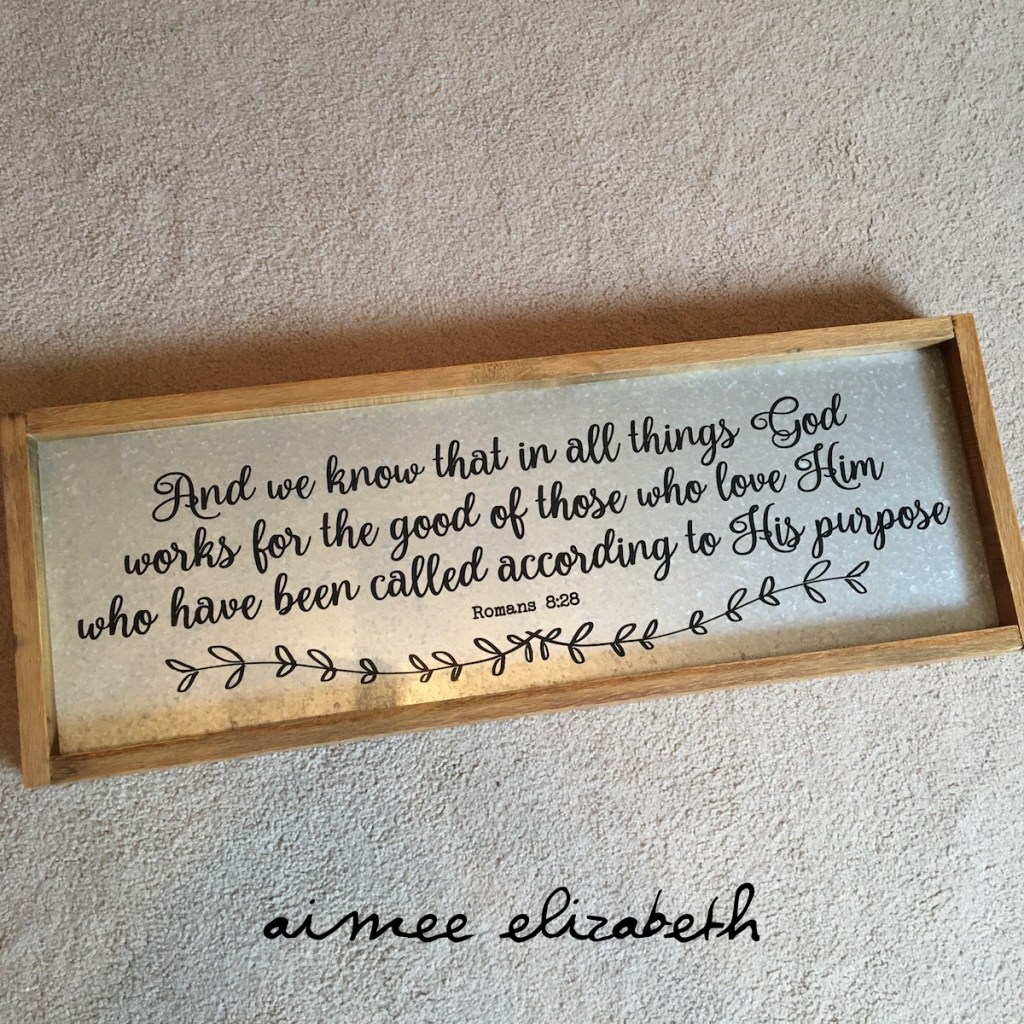 And we know that in all things God
works for the good of those who love Him
who have been called according to His purpose
Romans 8:28
aimee elizabeth